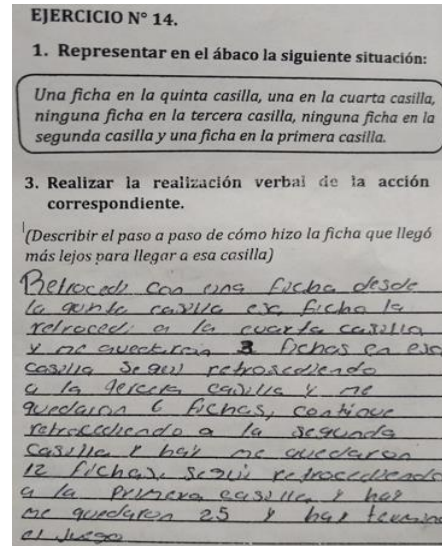 EJERCICIO N° 14.
1. Representar en el ábaco la siguiente situación:
Una ficha en la quinta casilla, una en la cuarta casilla,
ninguna ficha en la tercera casilla, ninguna ficha en la
segunda casilla y una ficha en la primera casilla.
3. Realizar la realización verbal de la acción
correspondiente.
(Describir el paso a paso de cómo hizo la ficha que llegó
más lejos para llegar a esa casilla)
Retrocedi con una ficha desde
la quinta casilla esa ficha la
retrocedi a la cuarta casilla
y me quedaron 3 fichas en esa
casilla segui retrosediendo
a la tercera casilla y me
quedaron 6 fichas, continue
retrocediendo a la segunda
casilla y hay me quedaron
12 fichas, segui retrocediendo
a la primera casilla y hay
me quedaron 25 y hay termino
el juego